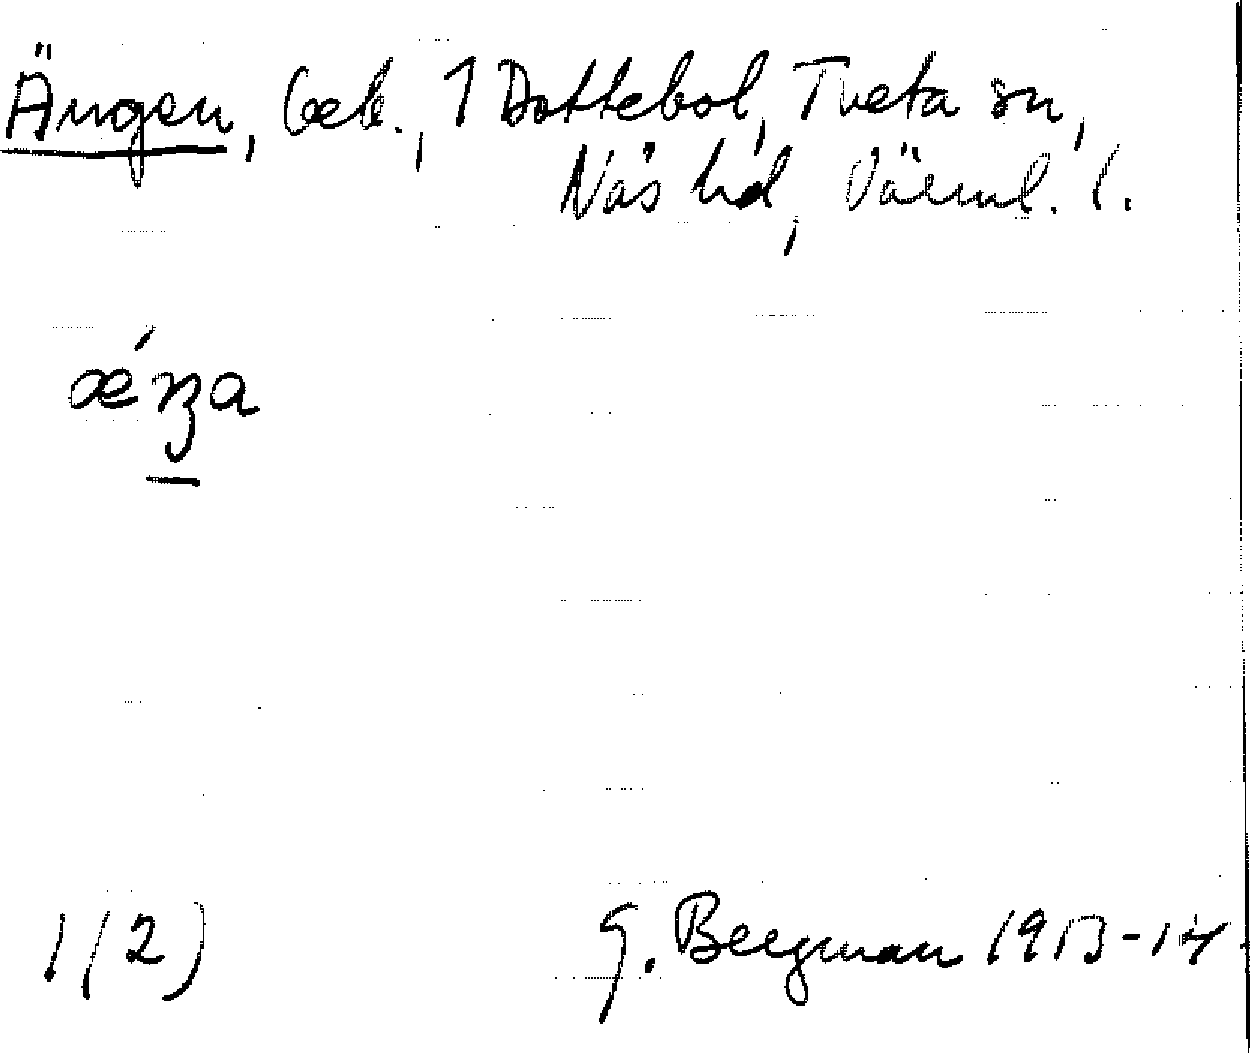 Ängen, beb., 1 Dottebol, Tveta sn,
Näs hd, Värml. l.
ǽŋa
1(2) G. Bergman 1913-14